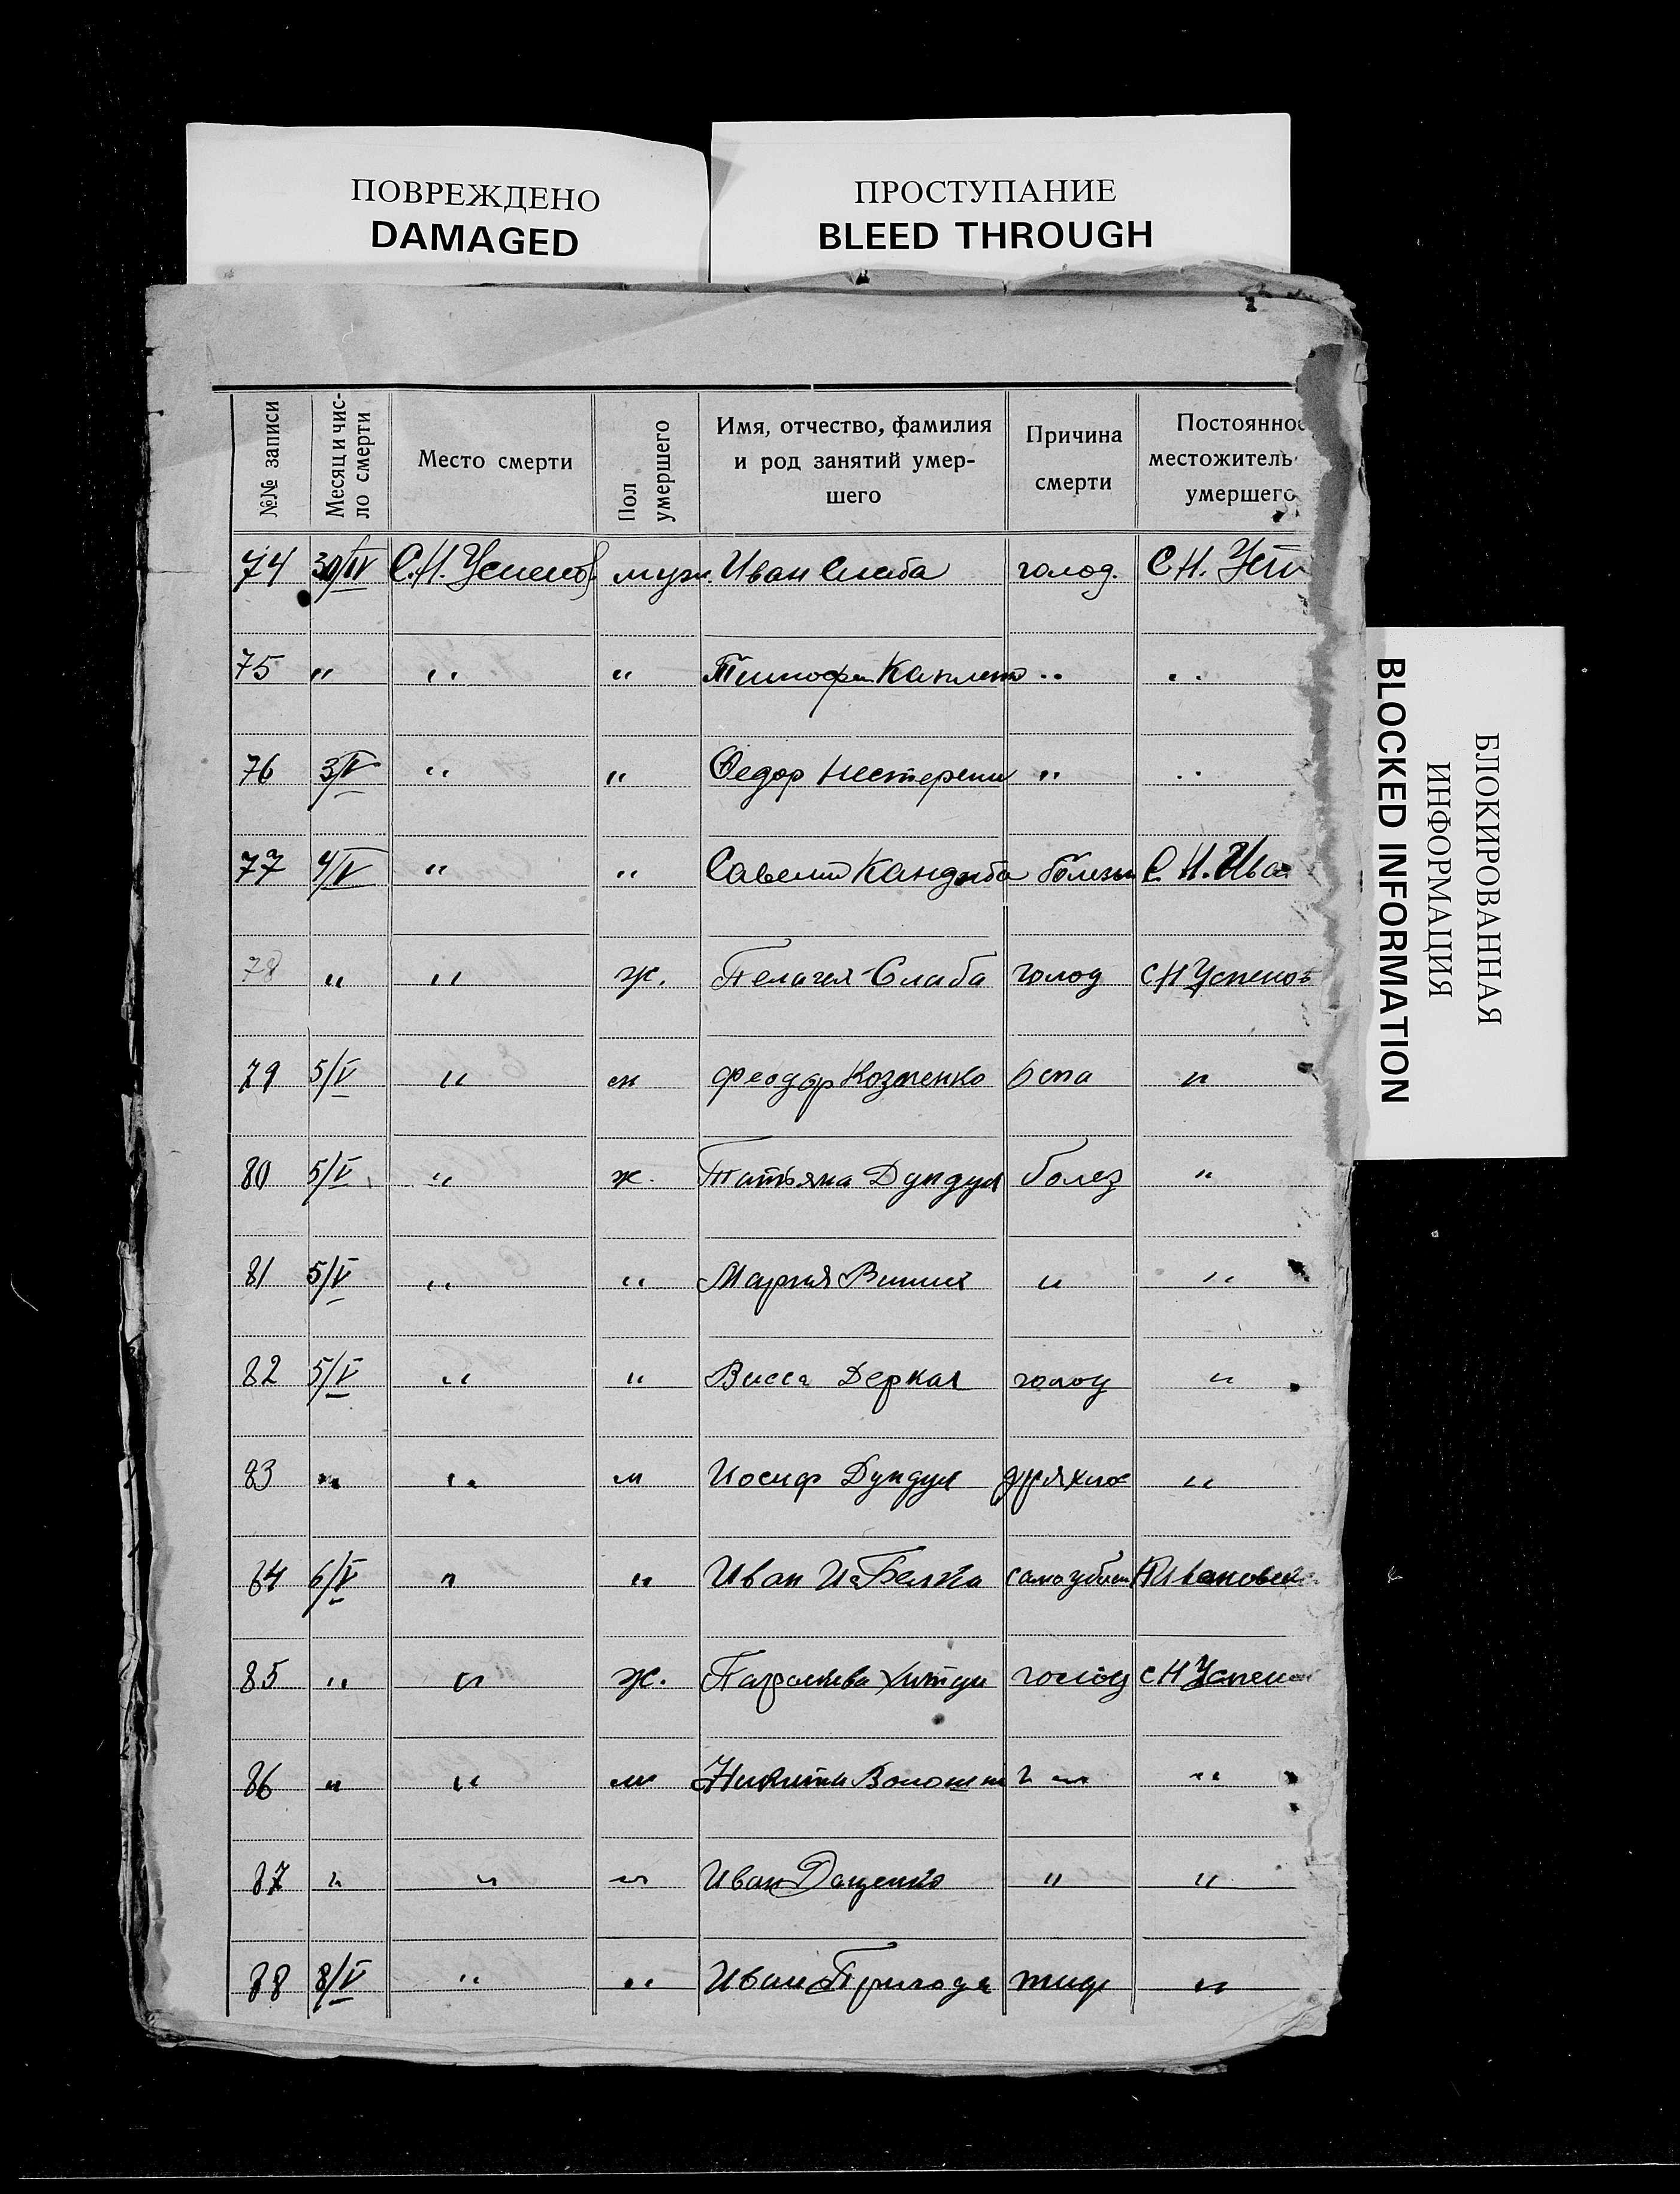 ПОВРЕЖДЕНО
DAMAGED
ПРОСТУПАНИЕ
BLEED THROUGH
БЛОКИРОВАННАЯ
ИНФОРМАЦИЯ
BLOCKED INFORMATION
№№ записи
Месяц и чис-
ло смерти
Место смерти
Пол
умершего
Имя, отчество, фамилия
и род занятий умер-
шего
Причина
смерти
Постоянное
местожитель-
умершего
74 30/IV С.Н. Успенов муж. Иван Слаба голод. С Н. Усп
75 " " " Тимофей " "
76 3/V " " Федор Нестерен " "
77 4/V " " Савелий Кандыба болезн С. Н. Ива
78 " " ж. Пелагея Слаба голод С Н Успенов
79 5/V " м Феодор Козменко оспа "
80 5/V " ж. Татьяна Дундук болез "
81 5/V " " Мария Винник " "
82 5/V " " Васса Деркач голод "
83 " " м Иосиф Дундук дряхлос "
84 6/V " " Иван Белка самоубий Н Ивановск
85 " " ж. Параскева голод С Н Успенов
86 " " м Никита Волошин "
87 " " " Иван Даценко " "
88 8/V " " Иван Пригода тиф "